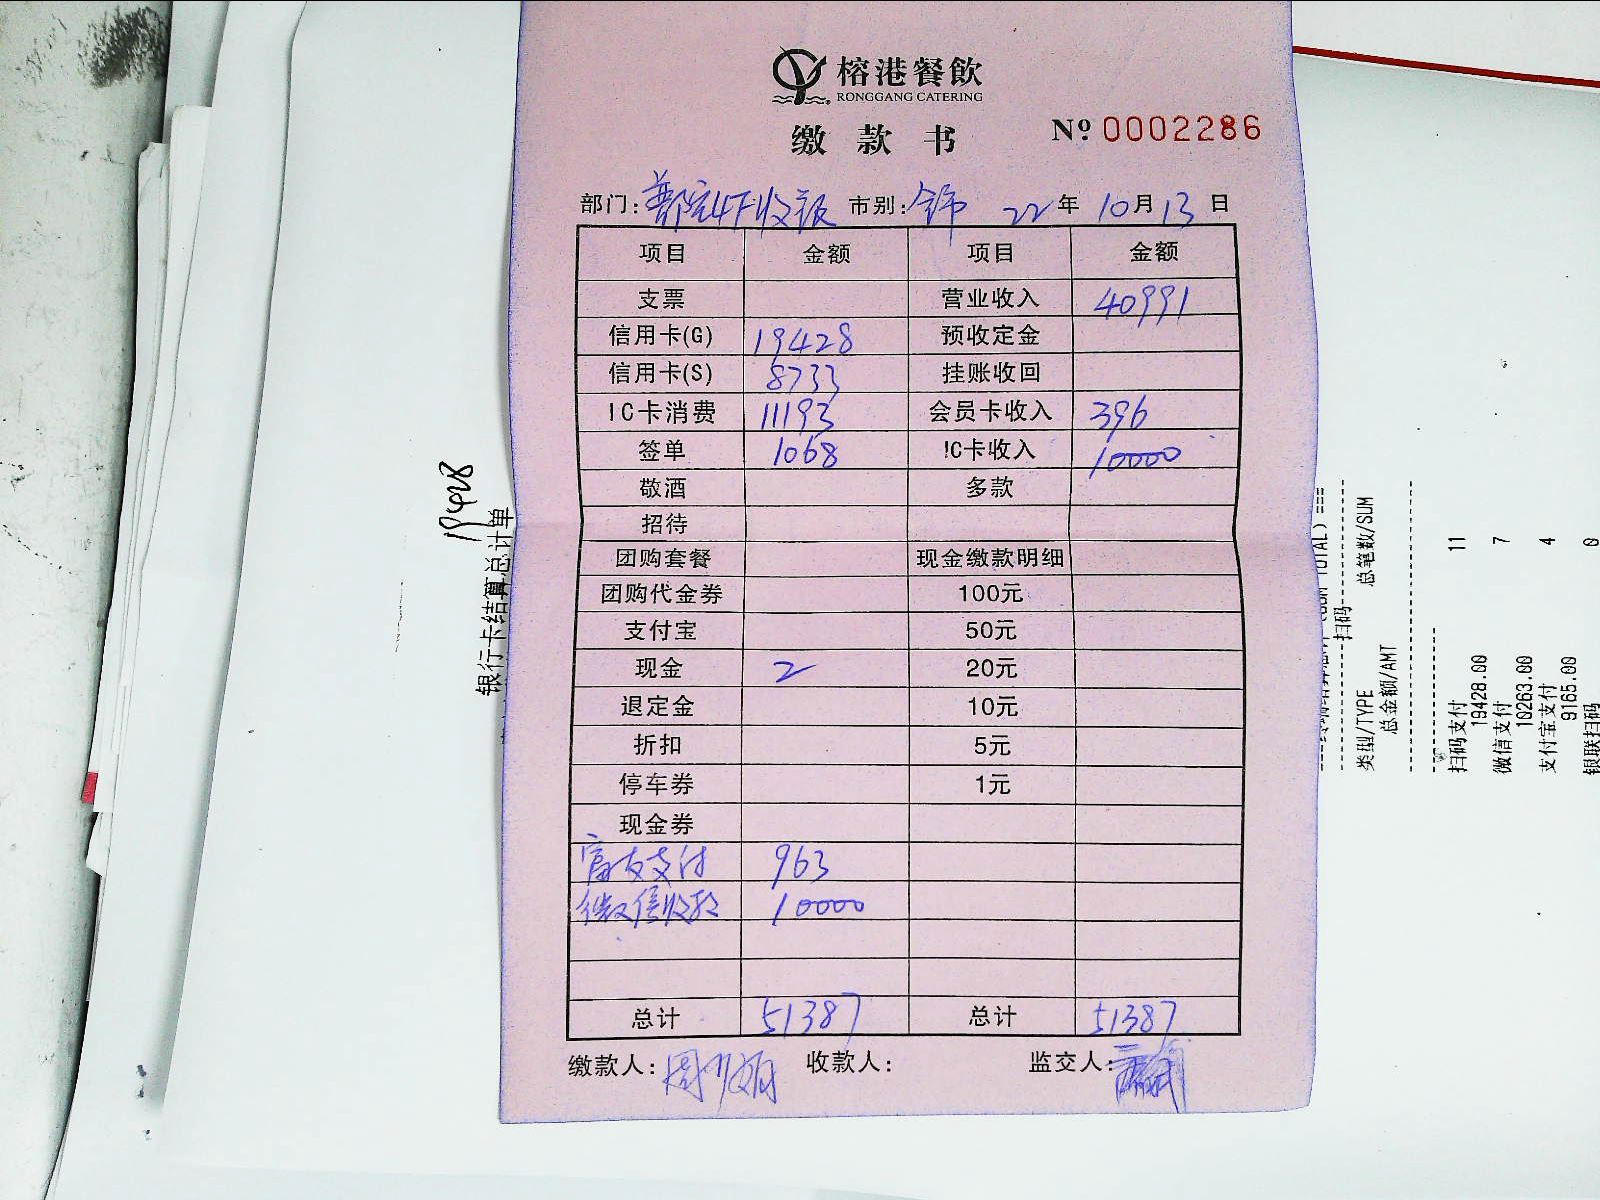 榕港餐飲
RONGGANG CATERING
缴款书 № 0002286
部门: 4F收银 市别: 全市 22年10月13日
项目 金额 项目 金额
支票 营业收入 40991
信用卡(G) 19428 预收定金
信用卡(S) 8733 挂账收回
IC卡消费 11193 会员卡收入 396
签单 1068 IC卡收入 10000
敬酒 多款
招待
团购套餐 现金缴款明细
团购代金券 100元
支付宝 50元
现金 2 20元
退定金 10元
折扣 5元
停车券 1元
现金券
富友支付 963
微信收款 10000
总计 51387 总计 51387
缴款人: 收款人: 监交人:
19428
银行卡结算总计单
类型/TYPE 总笔数/SUM
总金额/AMT
扫码
扫码支付 11
19428.00
微信支付 7
10263.00
支付宝支付 4
9165.00
银联扫码 0